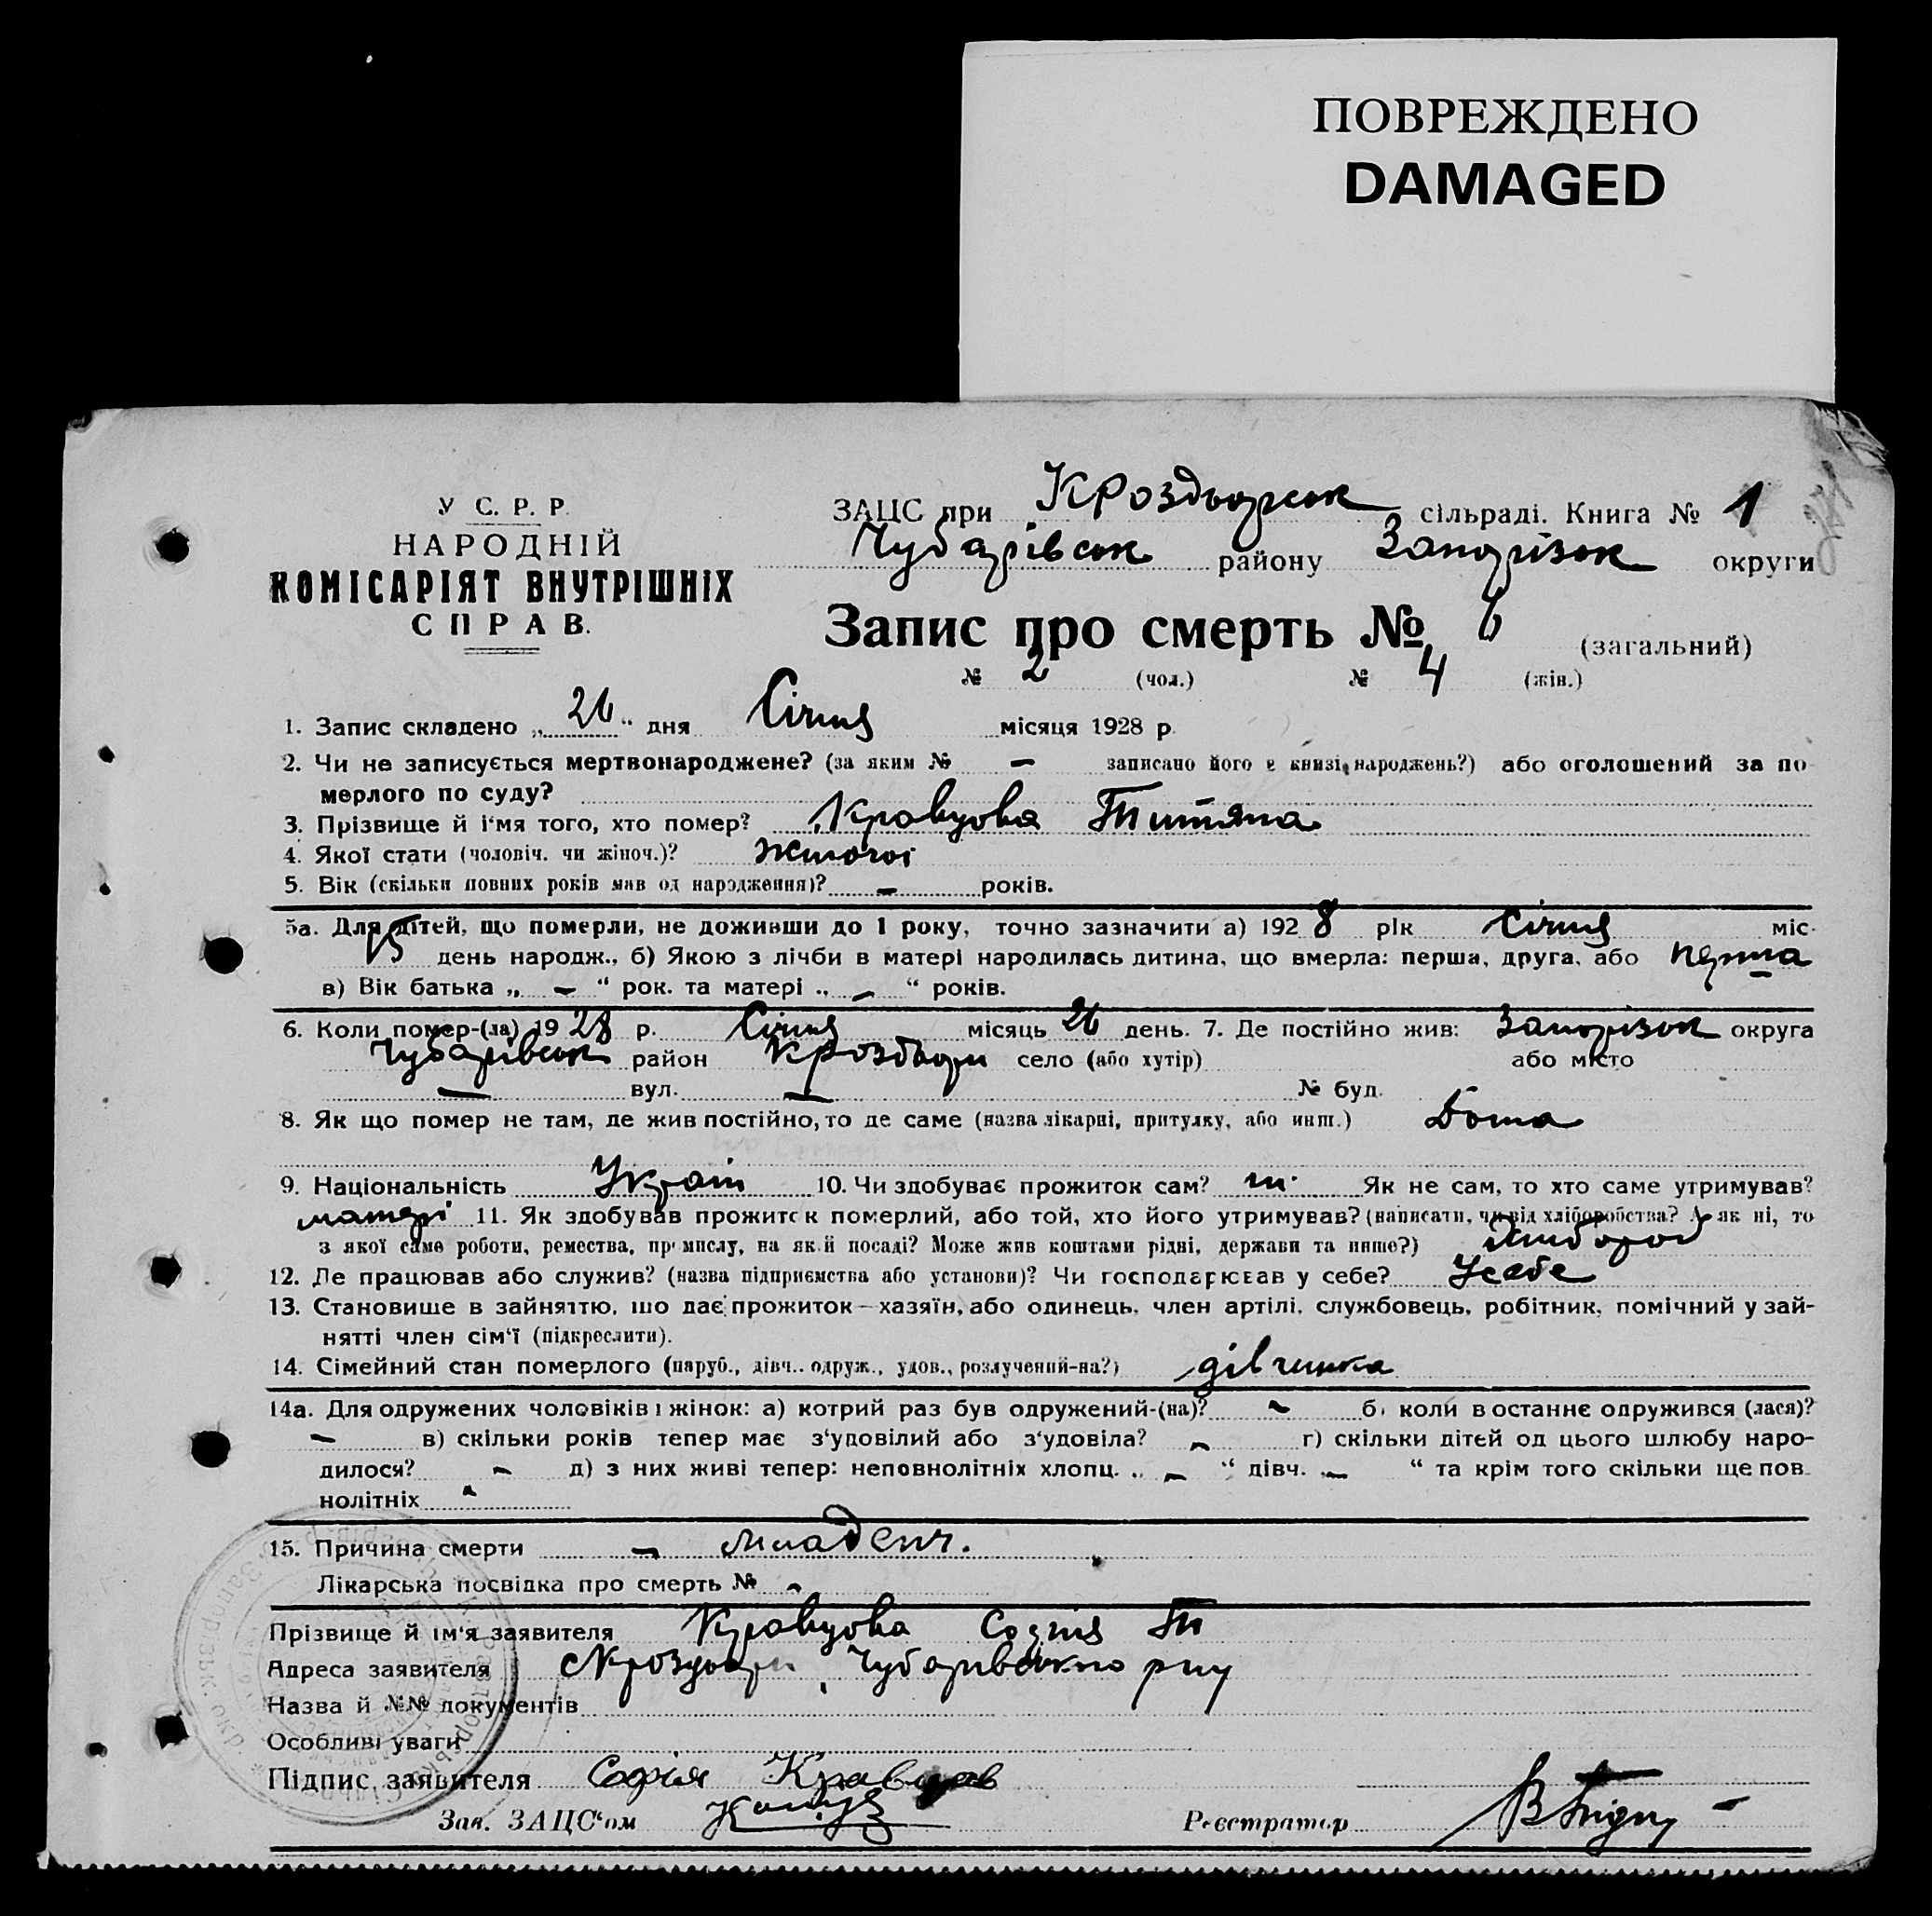 ПОВРЕЖДЕНО
DAMAGED
У С. Р. Р.
НАРОДНІЙ
КОМІСАРІЯТ ВНУТРІШНІХ
СПРАВ.
ЗАЦС при сільраді. Книга № 1
Чубарівськ району Запорізьк округи
Запис про смерть № 6 (загальний)
№ 2 (чол.) № 4 (жін.)
1. Запис складено „ 26 “ дня Січня місяця 1928 р.
2. Чи не записується мертвонароджене? (за яким № – записано його в книзі народжень?) або оголошений за по
мерлого по суду?
3. Прізвище й ім'я того, хто помер? Кравцова Титяна
4. Якої стати (чоловіч. чи жіноч.)? жіночої
5. Вік (скільки повних років мав од народження)? – років.
5а. Для дітей, що померли, не доживши до 1 року, точно зазначити а) 1928 рік Січня міс.
15 день народж., б) Якою з лічби в матері народилась дитина, що вмерла: перша, друга, або перша
в) Вік батька „ – “ рок. та матері „ – “ років.
6. Коли помер-(ла) 1928 р. Січня місяць 26 день. 7. Де постійно жив: Запорізьк округа
Чубарівськ район село (або хутір) або місто
– вул. – № буд.
8. Як що помер не там, де жив постійно, то де саме (назва лікарні, притулку, або инш.) Дома
9. Національність Україн 10. Чи здобуває прожиток сам? ні. Як не сам, то хто саме утримував?
матері 11. Як здобував прожиток померлий, або той, хто його утримував? (написати, чи від хліборобства? А як ні, то
з якої саме роботи, ремества, промислу, на якій посаді? Може жив коштами рідні, держави та инше?)
12. Де працював або служив? (назва підприємства або установи)? Чи господарював у себе? У себе
13. Становище в зайняттю, що дає прожиток — хазяїн, або одинець, член артілі, службовець, робітник, помічний у зай-
нятті член сім'ї (підкреслити).
14. Сімейний стан померлого (паруб., дівч., одруж., удов., розлучений-на?) дівчинка
14а. Для одружених чоловіків і жінок: а) котрий раз був одружений-(на)? – б) коли в останнє одружився (лася)?
– в) скільки років тепер має з'удовілий або з'удовіла? – г) скільки дітей од цього шлюбу наро-
дилося? – д) з них живі тепер: неповнолітніх хлопц. „ – “ дівч. „ – “ та крім того скільки ще пов-
нолітніх –
15. Причина смерти – младенч.
Лікарська посвідка про смерть № –
Прізвище й ім'я заявителя Кравцова Софія Т
Адреса заявителя
Назва й №№ документів
Особливі уваги
Підпис заявителя Софія Кравцов
Зав. ЗАЦС'ом
Реєстратор